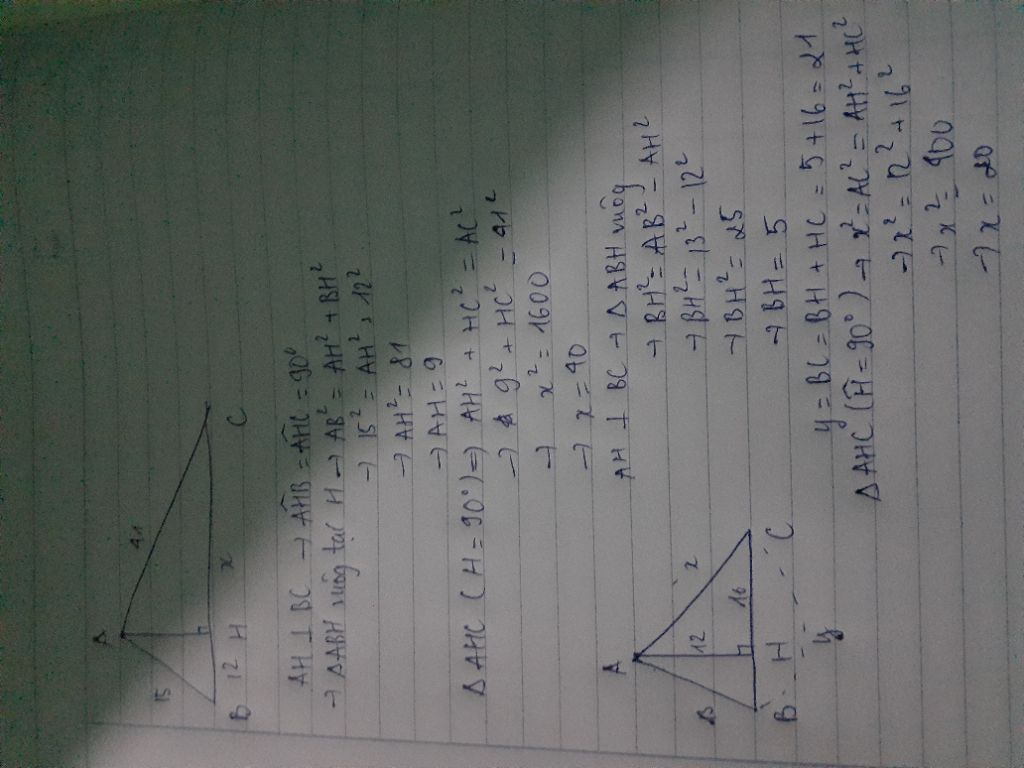 A
15
41
B
12
H
x
C
AH ⊥ BC → AHB = AHC = 90°
→ ΔABH vuông tại H → AB² = AH² + BH²
→ 15² = AH² + 12²
→ AH² = 81
→ AH = 9
ΔAHC (H = 90°) => AH² + HC² = AC²
→ 9² + HC² = 41²
→ x² = 1600
→ x = 40
A
13
12
x
16
B
H
C
y
AH ⊥ BC → ΔABH vuông
→ BH² = AB² - AH²
→ BH² = 13² - 12²
→ BH² = 25
→ BH = 5
y = BC = BH + HC = 5 + 16 = 21
ΔAHC (H = 90°) → x² = AC² = AH² + HC²
→ x² = 12² + 16²
→ x² = 400
→ x = 20